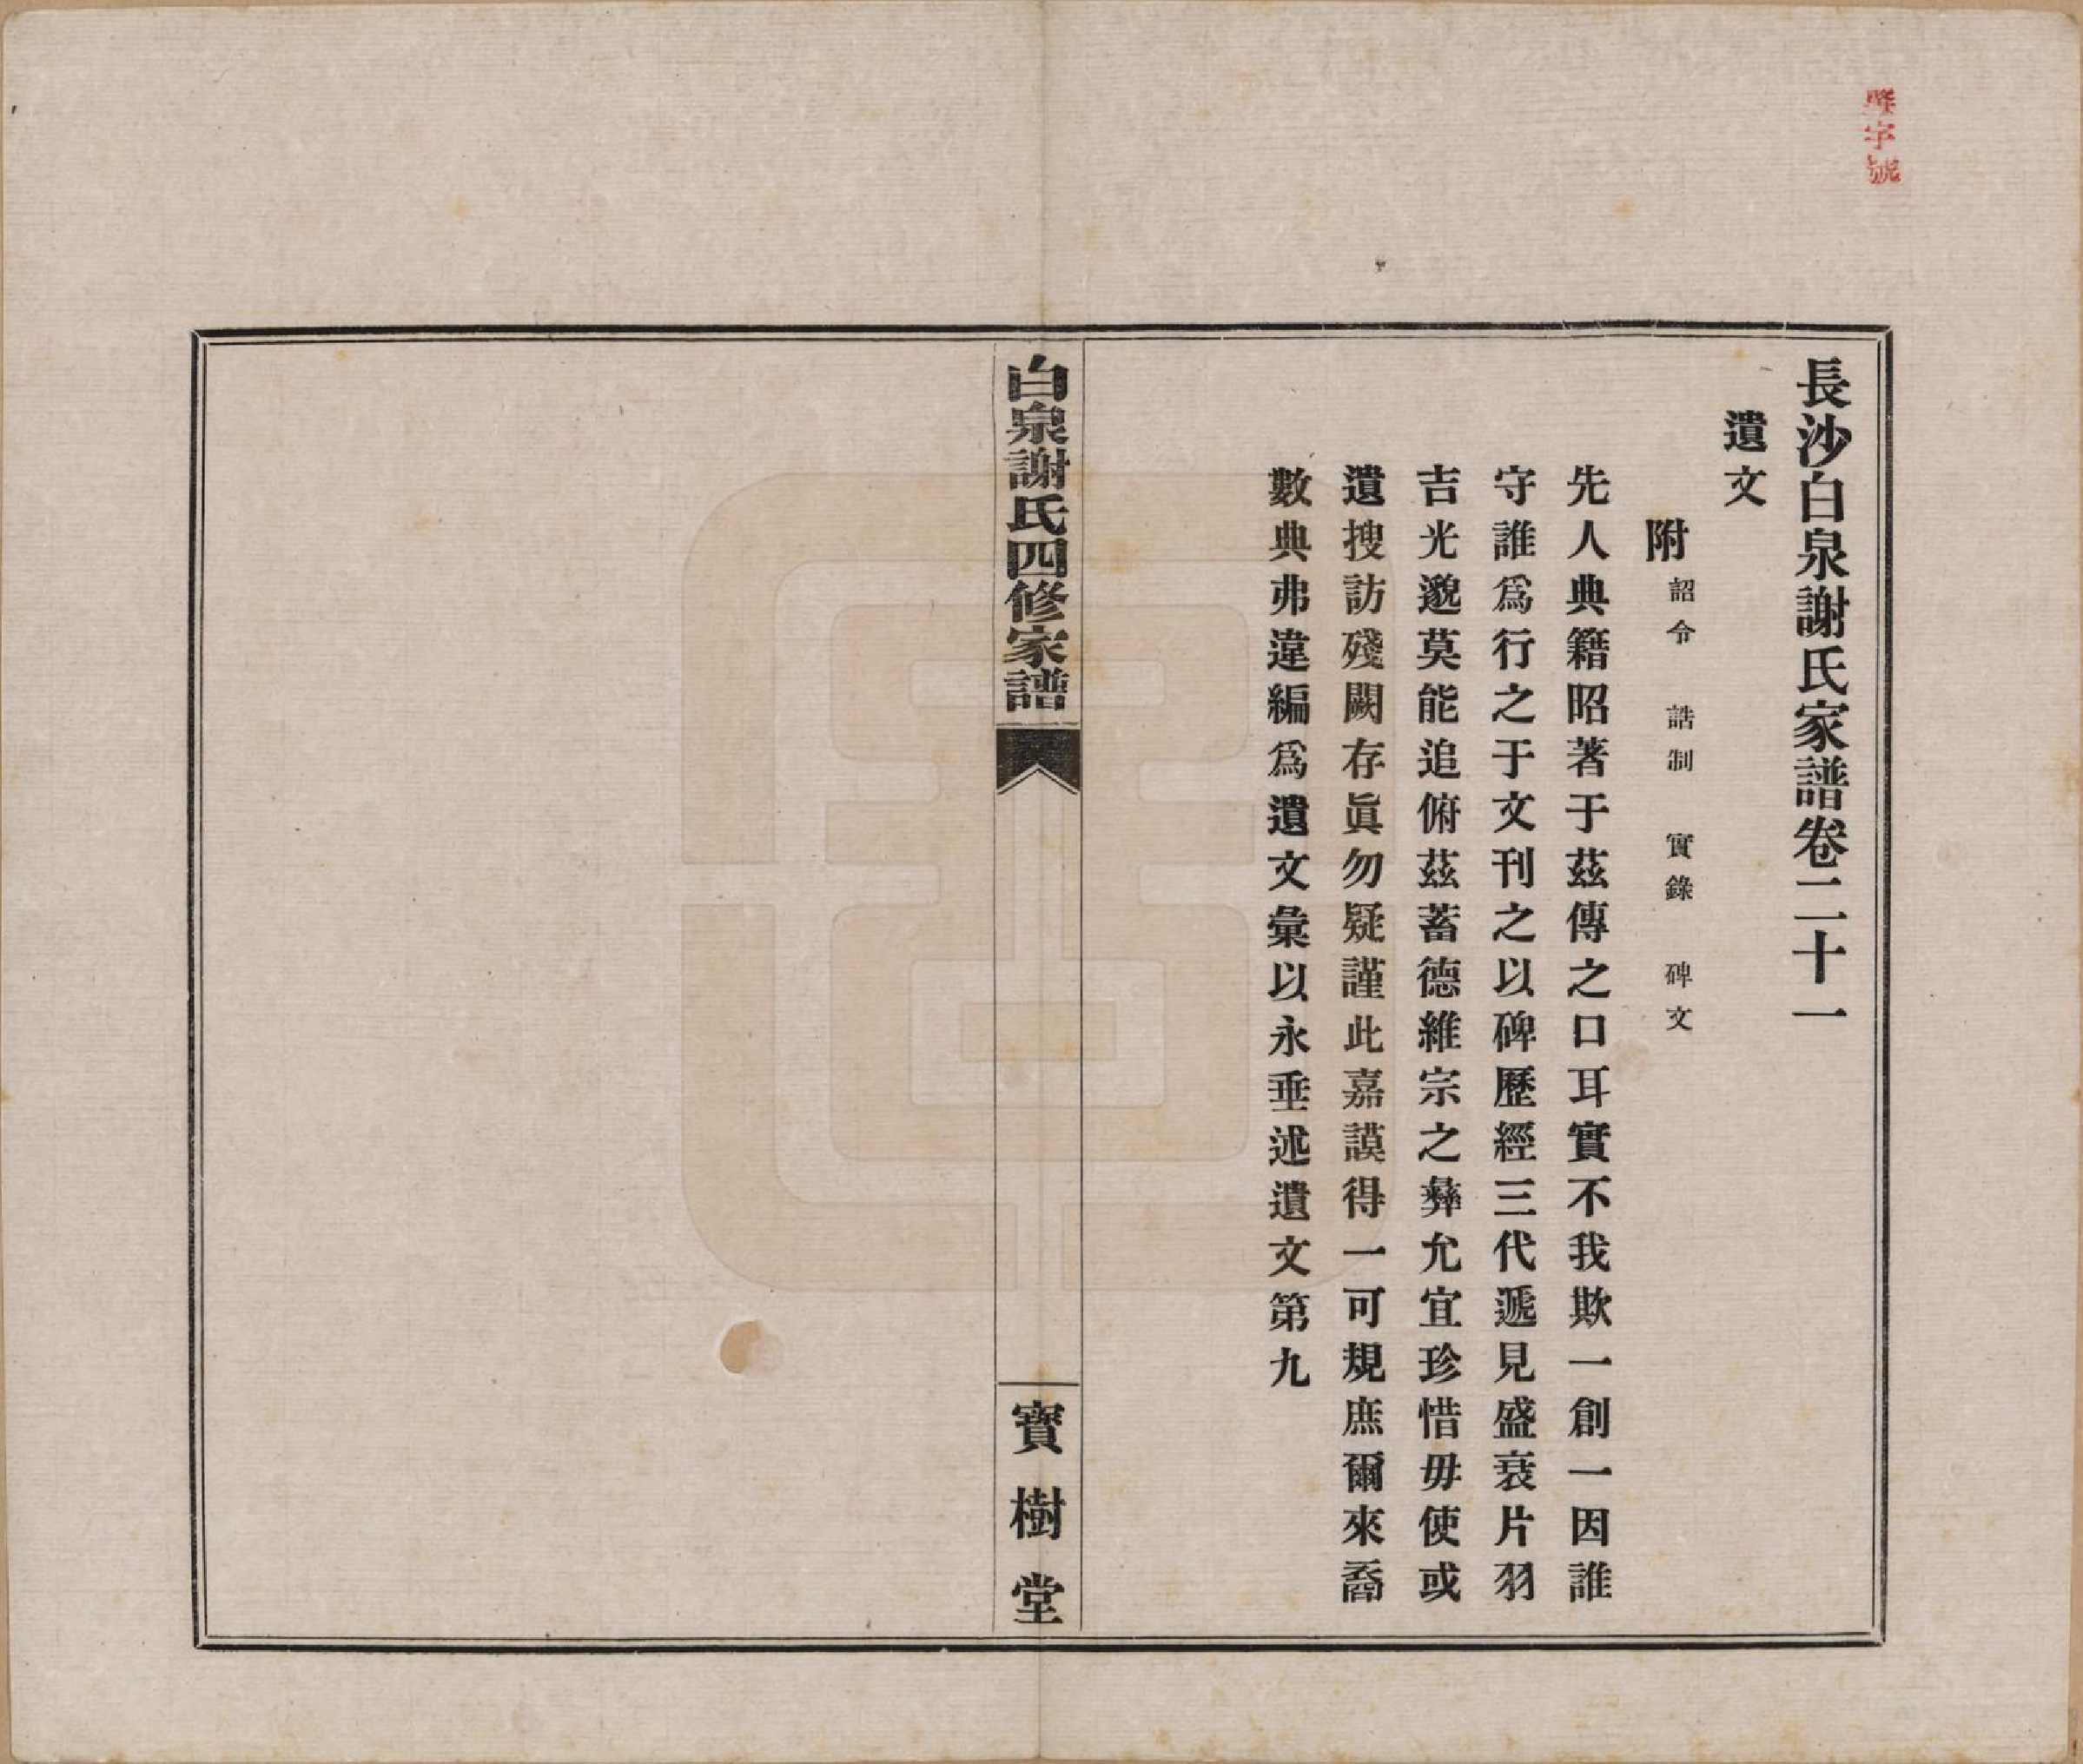 長沙白泉謝氏家譜卷二十一
遺文
附 詔令 誥制 實錄 碑文
先人典籍昭著于茲傳之口耳實不我欺一創一因誰
守誰爲行之于文刊之以碑歷經三代遞見盛衰片羽
吉光邈莫能追俯茲蓄德維宗之彝允宜珍惜毋使或
遺搜訪殘闕存眞勿疑謹此嘉謨得一可規庶爾來裔
數典弗違編爲遺文彙以永垂述遺文第九
白泉謝氏四修家譜
寶樹堂
字號